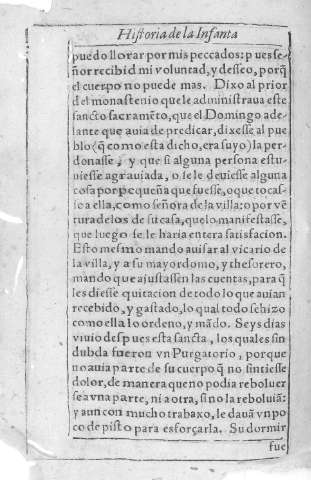 Historia de la Infanta
puedo llorar por mis peccados: pues se-
ñor recibid mi voluntad, y desseo, porq̃
el cuerpo no puede mas. Dixo al prior
del monastenio que le administraua este
sancto sacramẽto, que el Domingo ade-
lante que auia de predicar, dixesse al pue
blo (q̃ como esta dicho, era suyo) la per-
donasse, y que si alguna persona estu-
uiesse agrauiada, o se le deuiesse alguna
cosa por pequeña que fuesse, o que tocas-
se a ella, como señora de la villa: o por vẽ
tura de los de su casa, que lo manifestasse,
que luego se le haria entera satisfacion.
Esto mesmo mando auisar al vicario de
la villa, y a su mayordomo, y thesorero,
mando que ajustassen las cuentas, para q̃
les diesse quitacion de todo lo que auian
recebido, y gastado, lo qual todo se hizo
como ella lo ordeno, y mãdo. Seys dias
viuio despues esta sancta, los quales sin
dubda fueron vn Purgatorio, porque
no auia parte de su cuerpo q̃ no sintiesse
dolor, de manera que no podia reboluer
se a vna parte, ni a otra, si no la reboluiã:
y aun con mucho trabaxo, le dauã vn po
co de pisto para esforçarla. Su dormir
fue